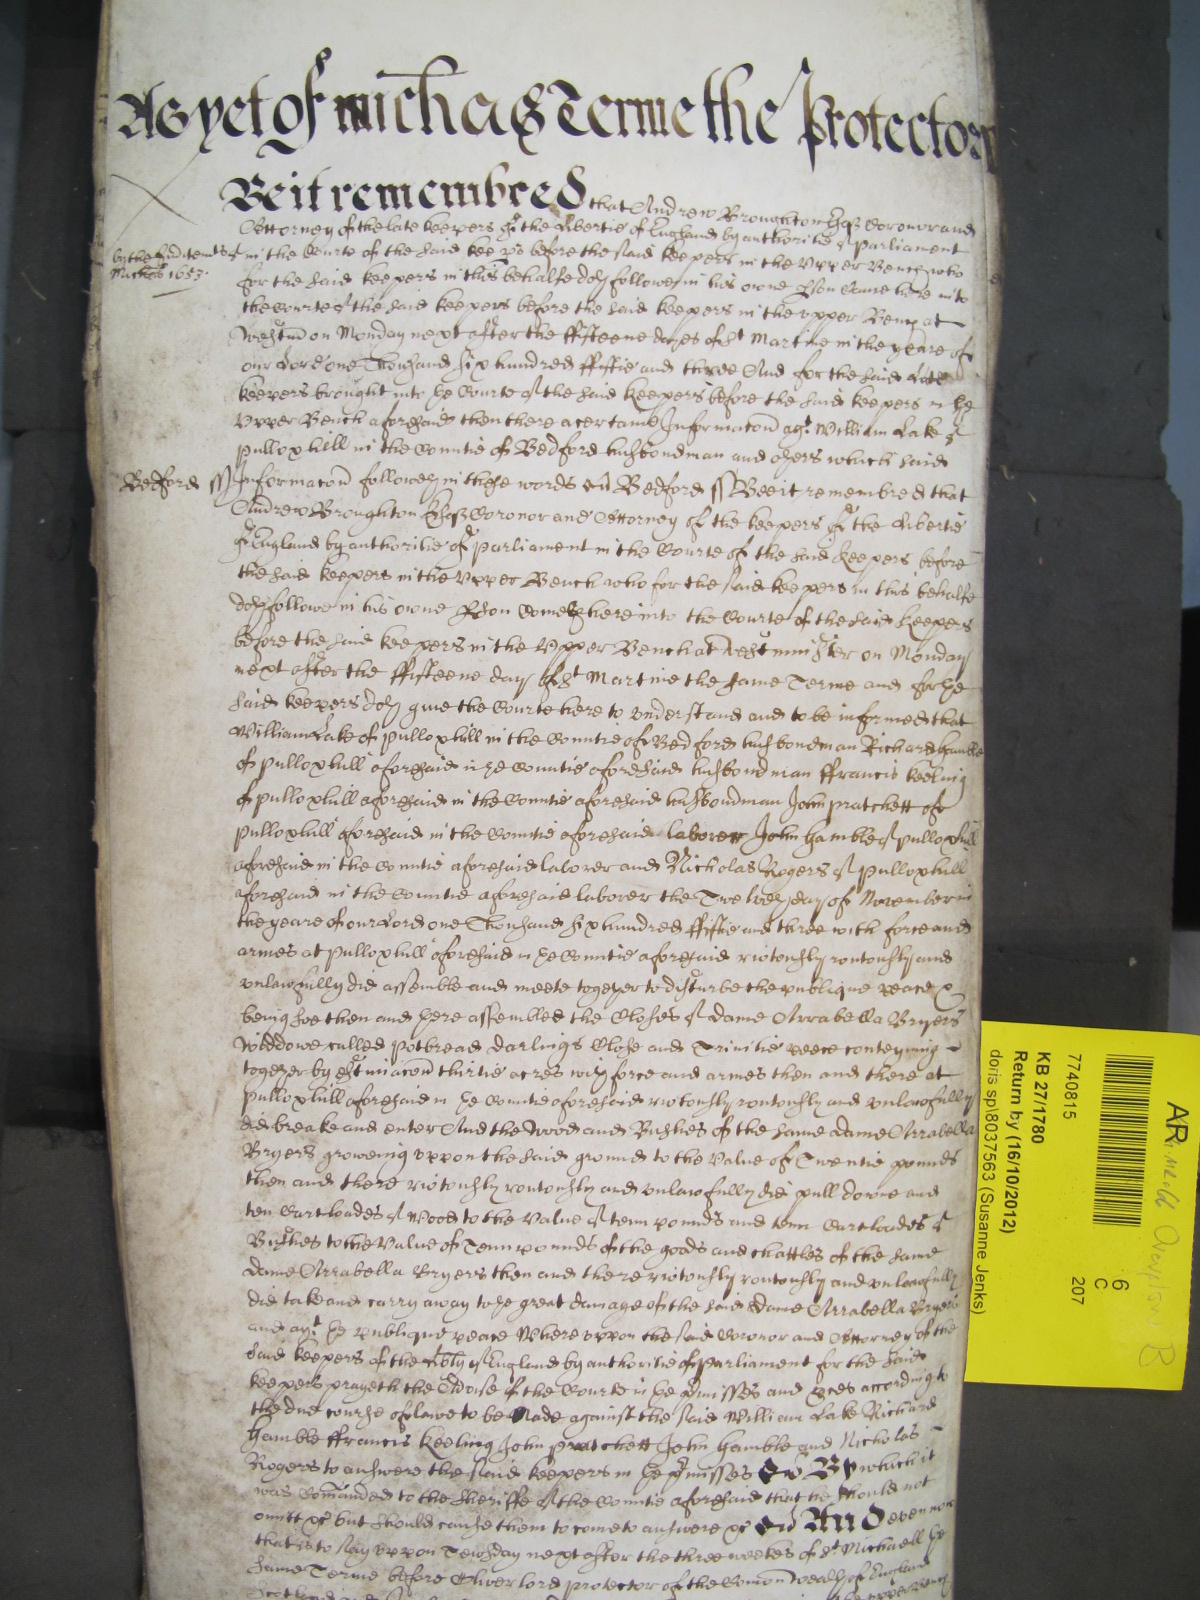 As yet of Michas Terme the Protector
Be it remembred that Andrew Broughton Esqr Coronor and
Attorney of the late keepers of the libertie of England by authoritie of Parliament
in the Courte of the said keeps before the said keepers in the Upper Bench who
Michas 1653.
for the said keepers in this behalfe doth followe in his owne pson Came here into
the Courte of the said keepers before the said keepers in the upper Bench at
Westmr on Monday next after the fifteene dayes of St Martine in the yeare of
our Lord one Thousand six hundred fiftie and three And for the said late
keepers brought into the Courte of the said keepers before the said keepers in the
Upper Bench aforesaid then there a certaine Informacon agt William Lake of
Pulloxhill in the Countie of Bedford husbondman and others which said
Bedford ss Informacon followeth in these words Bedford ss Bee it remembred that
Andrew Broughton Esqr Coronor and Attorney of the keepers of the libertie
of England by authoritie of Parliament in the Courte of the said keepers before
the said keepers in the Upper Bench who for the said keepers in this behalfe
doth followe in his owne pson Cometh here into the Courte of the said keepers
before the said keepers in the Upper Bench at Westminster on Monday
next after the fifteene days of St Martine the same Terme and for the
said keepers doth give the Courte here to understand and to be informed that
William Lake of Pulloxhill in the Countie of Bedford husbondman Richard Gamble
of Pulloxhill aforesaid in the Countie aforesaid husbondman ffrancis keeling
of Pulloxhill aforesaid in the Countie aforesaid husbondman John Pratchett of
Pulloxhill aforesaid in the Countie aforesaid laborer John Gamble of Pulloxhill
aforesaid in the Countie aforesaid laborer and Nicholas Rogers of Pulloxhill
aforesaid in the Countie aforesaid laborer the Twelveth day of November in
the yeare of our Lord one Thousand six hundred fiftie and three with force and
armes at Pulloxhill aforesaid in the Countie aforesaid riotously routously and
unlawfully did assemble and meete together to disturbe the publique peace &
being soe then and there assembled the Closes of dame Arrabella Bryers
widdowe called Potbread darlings Close and Trinitie peece conteyning
together by estimacon thirtie acres with force and armes then and there at
Pulloxhill aforesaid in the Countie aforesaid riotously routously and unlawfully
did breake and enter And the Wood and Bushes of the same dame Arrabella
Bryers groweing uppon the said ground to the value of Twentie pounds
then and there riotously routously and unlawfully did pull downe and
ten Cartloades of Wood to the value of tenn pounds and tenn Cartloades of
Bushes to the value of Tenn pounds of the goods and chattles of the same
dame Arrabella Bryers then and there riotously routously and unlawfully
did take and carry away to the great damage of the said dame Arrabella Bryers
and agt the publique peace Whereuppon the said Coronor and Attorney of the
said keepers of the libty of England by authoritie of Parliament for the said
keepers prayeth the Advise of the Courte in the pmisses and pces according to
the due course of lawe to be Made against the said William Lake Richard
Gamble ffrancis Keeling John Pratchett John Gamble and Nicholas
Rogers to answere the said keepers in the pmisses By which it
was Comanded to the Sheriffe of the Countie aforesaid that he should not
omitt &c but should cause them to come to answere &c And even now
that is to say uppon Tewsday next after the three weekes of St Michaell the
same Terme before Oliver lord protector of the Comonwealth of England
Scotland
7740815
KB 27/1780
Return by (16/10/2012)
doris sp\8037563 (Susanne Jenks)
6
C
207
AR